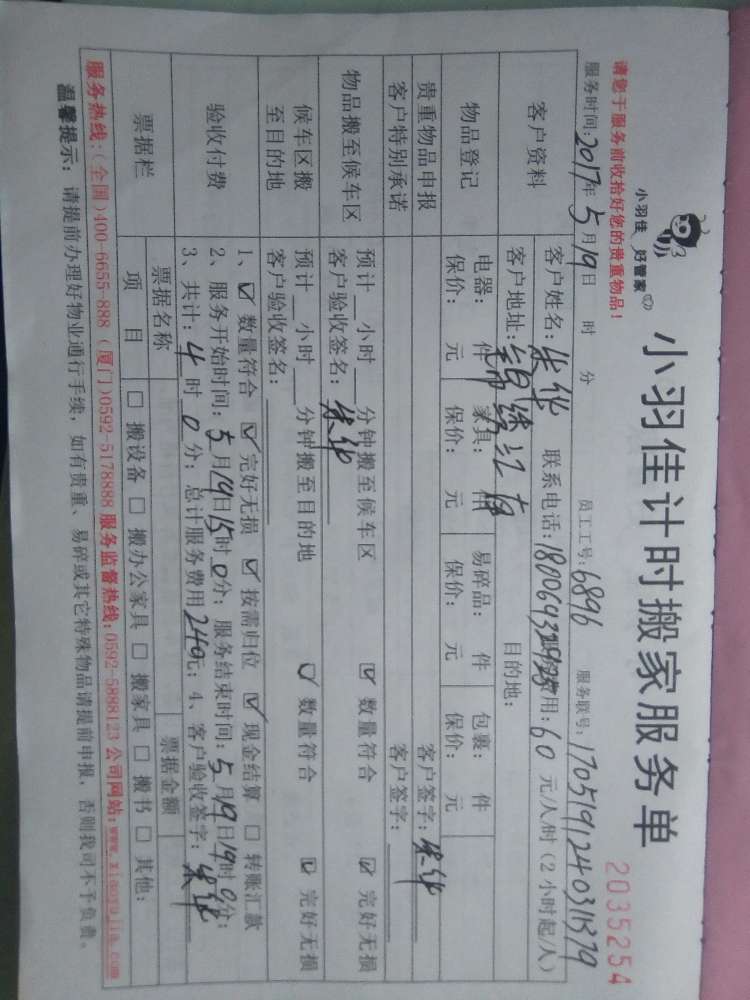 小羽佳 好管家
小羽佳计时搬家服务单
2035254
请您于服务前收拾好您的贵重物品！
服务时间：2017年5月19日 时 分 员工工号：6896 服务联号：
客户资料
客户姓名：朱华 联系电话： 费用：60元/人/时（2小时起/人）
客户地址： 目的地：
物品登记
电器： 件 家具： 件 易碎品： 件 包裹： 件
保价： 元 保价： 元 保价： 元 保价： 元
贵重物品申报 客户签字：朱华
客户特别承诺 客户签字：
物品搬至候车区
预计__小时__分钟搬至候车区 ☑ 数量符合 ☑ 完好无损
客户验收签名：朱华
候车区搬至目的地
预计__小时__分钟搬至目的地 ☑ 数量符合 ☑ 完好无损
客户验收签名：
验收付费
1、☑ 数量符合 ☑ 完好无损 ☑ 按需归位 ☑ 现金结算 □ 转账汇款
2、服务开始时间：5月19日15时0分；服务结束时间：5月19日19时0分；
3、共计：4时0分；总计服务费用240元；4、客户验收签字：朱华
票据栏
票据名称 票据金额
项目 □ 搬设备 □ 搬办公家具 □ 搬家具 □ 搬书 □ 其他：
服务热线：（全国）400-6655-888（厦门）0592-5178888 服务监督热线：0592-5888123 公司网站：www.xiaoyujia.com
温馨提示：请提前办理好物业通行手续，如有贵重、易碎或其它特殊物品请提前申报，否则我司不予负责。